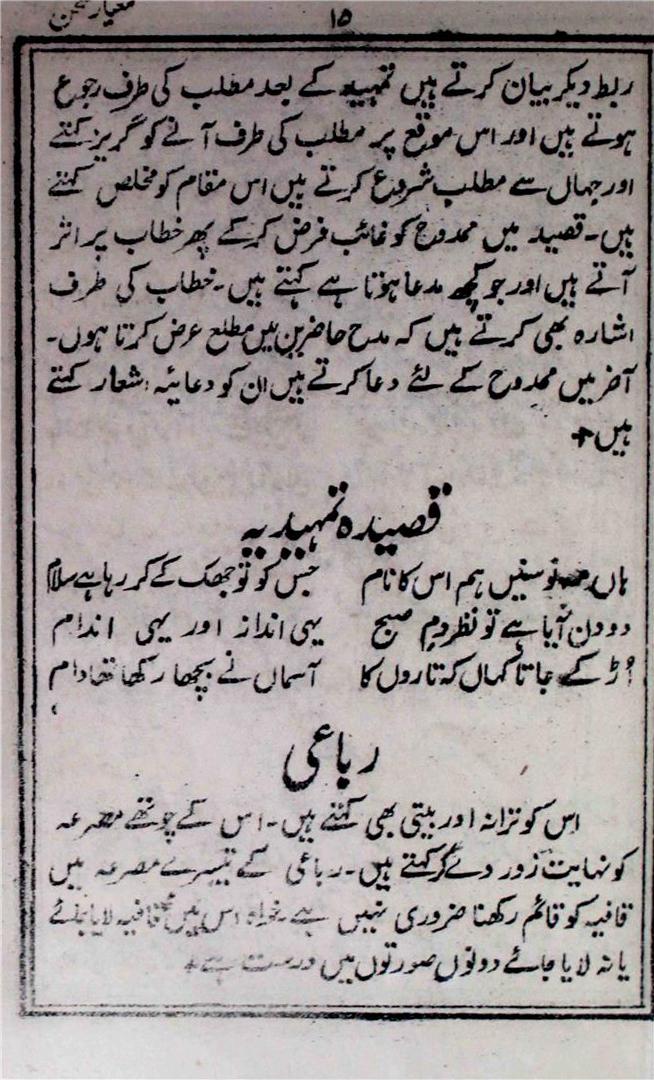 معیار سخن
۱۵
ربط دیکر بیان کرتے ہیں تمہید کے بعد مطلب کی طرف رجوع
ہوتے ہیں اور اس موقع پر مطلب کی طرف آنے کو گریز کہتے
اور جہاں سے مطلب شروع کرتے ہیں اس مقام کو مخلص کہتے
ہیں۔ قصید میں ممدوح کو غائب فرض کرکے پھر خطاب پر اتر
آتے ہیں اور جو کچھ مدعا ہوتا ہے کہتے ہیں۔ خطاب کی طرف
اشارہ بھی کرتے ہیں کہ مدح حاضر میں مطلع عرض کرتا ہوں۔
آخر میں ممدوح کے لئے دعا کرتے ہیں ان کو دعائیہ اشعار کہتے
ہیں
قصیدہ تمہیدیہ
ہاں مہ نو سنیں ہم اس کا نام جس کو تو جھک کے کر رہا ہے سلام
دو دن آیا ہے تو نظر دم صبح یہی انداز اور یہی اندام
اڑ کے جاتا کہاں کہ تاروں کا آسماں نے بچھا رکھا تھا دام
رباعی
اس کو ترانہ اور بیتی بھی کہتے ہیں۔ اس کے چوتھے مصرعہ
کو نہایت زور دے کر کہتے ہیں۔ رباعی کے تیسرے مصرعہ میں
قافیہ کو قائم رکھنا ضروری نہیں ہے۔ خواہ اس میں قافیہ لایا جائے
یا نہ لایا جائے دونوں صورتوں میں درست ہے